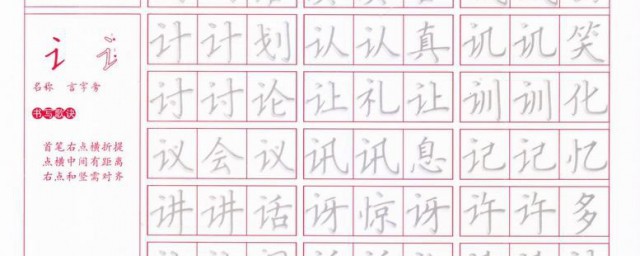 讠 讠
名称 言字旁
书写歌诀
首笔右点横折提
点横中间有距离
右点和竖需对齐
计计划 认认真 讥讥笑
讨讨论 让礼让 训训化
议会议 讯讯息 记记忆
讲讲话 讶惊讶 许许多